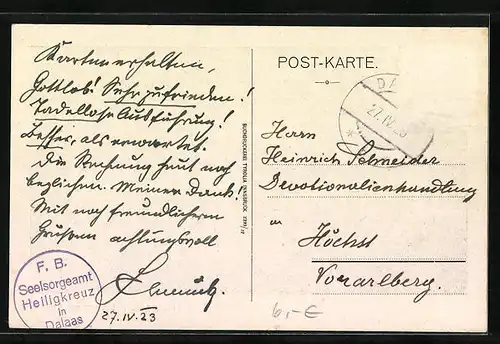 Karten erhalten,
Gottlob! Sehr zufrieden!
Tadellose Ausführung!
Besser, als erwartet.
Die Rechnung heut noch
beglichen. Meinen Dank!
Mit noch freundlichern
Grüßen achtungsvoll
27.IV.23
F. B.
Seelsorgeamt
Heiligkreuz
in
Dalaas
BUCHDRUCKEREI TYROLIA INNSBRUCK
POST-KARTE.
DA
27.IV.23
Herrn
Heinrich Schneider
Devotionalienhandlung
in
Höchst
Vorarlberg.
6,-€